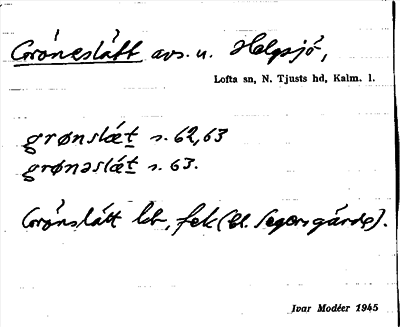 Gröneslätt avs. u. Helgsjö,
Lofta sn, N. Tjusts hd, Kalm. l.
grønslæt s. 62,63
grønəslæt s. 63.
Grönslätt lb, fek (bl. Segersgärde).
Ivar Modéer 1945